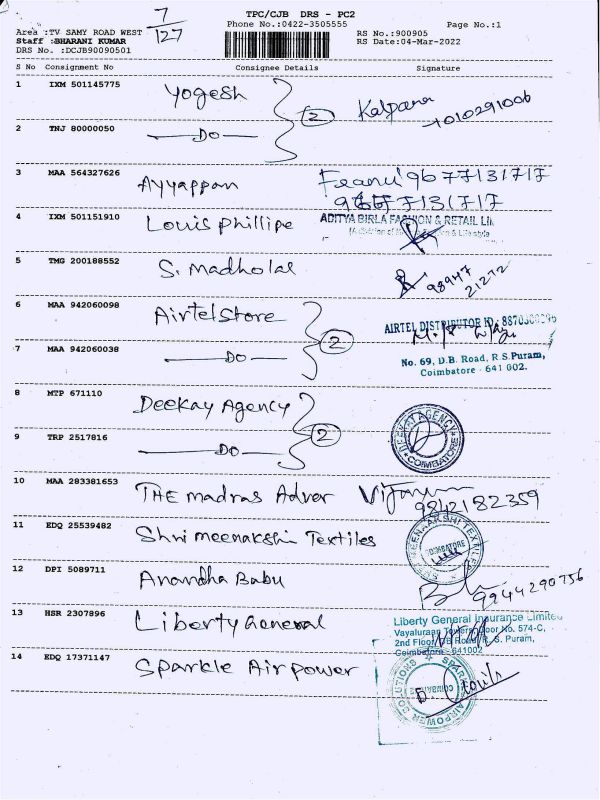 7
127
TPC/CJB DRS - PC2
Phone No.:0422-3505555
Page No.:1
Area :TV SAMY ROAD WEST
Staff :BHARANI KUMAR
DRS No. :DCJB90090501
RS No.:900905
RS Date:04-Mar-2022
S No Consignment No Consignee Details Signature
1 IXM 501145775 Yogesh 2 Kalpana
2 TNJ 80000050 Do
3 MAA 564327626 Ayyappan 9677131717
4 IXM 501151910 Louis Phillipe ADITYA BIRLA FASHION & RETAIL
5 TMG 200188552 S. Madholal 98947 21272
6 MAA 942060098 Airtel Store 2 AIRTEL DISTRIBUTOR ID
7 MAA 942060038 Do No. 69, D.B. Road, R.S.Puram,
Coimbatore - 641 002.
8 MTP 671110 Deekay Agency 2
9 TRP 2517816 Do COIMBATORE
10 MAA 283381653 THE madras Adver 9842182359
11 EDQ 25539482 Shri meenakshi Textiles COIMBATORE
12 DPI 5089711 Anandha Babu 9944290756
13 HSR 2307896 Liberty General Liberty General Insurance Limited
No. 574-C,
2nd Floor R.S. Puram,
641002
14 EDQ 17371147 Sparkle Airpower SPARKLE AIRPOWER SOLUTIONS